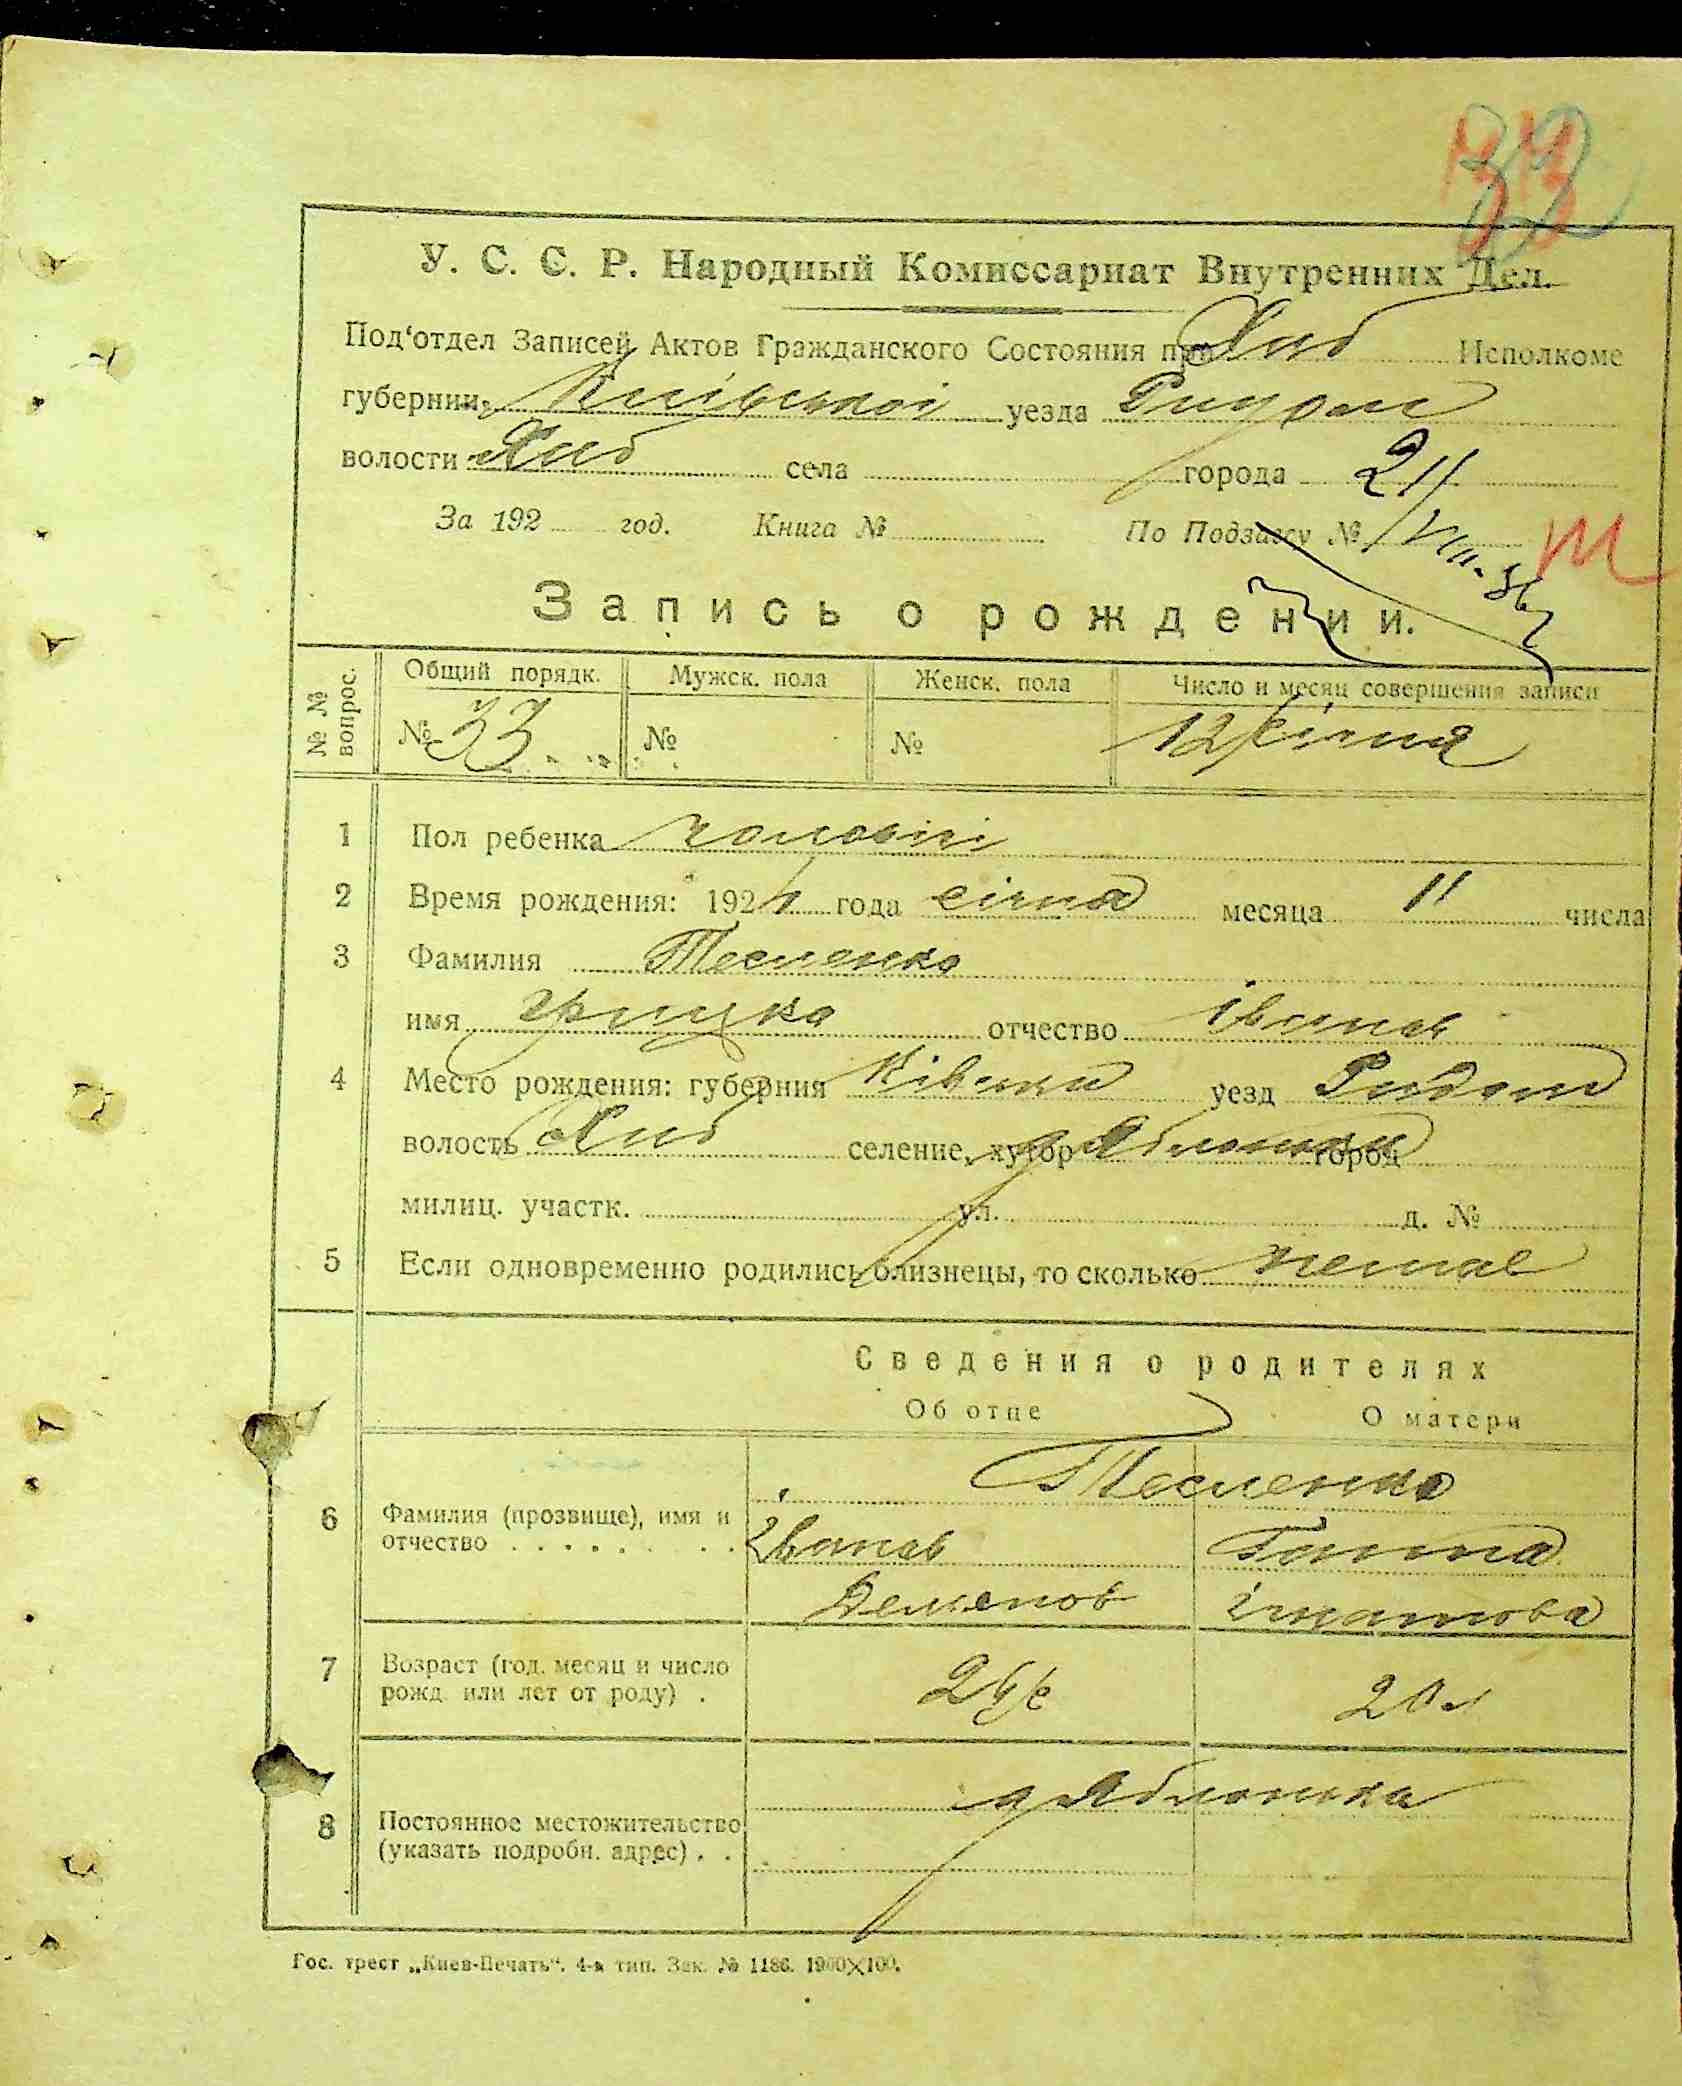 33
У. С. С. Р. Народный Комиссариат Внутренних Дел.
Под‘отдел Записей Актов Гражданского Состояния при Хаб Исполкоме
губернии Київської уезда
волости Хаб села города 21/VIII-36
За 192 год. Книга № По Подзагсу №
Запись о рождении.
№№ вопрос. Общий порядк. Мужск. пола Женск. пола Число и месяц совершения записи
№ 33 № № 12/січня
1 Пол ребенка чоловічі
2 Время рождения: 192 года січня месяца 11 числа
3 Фамилия Тесленко
имя Грицко отчество Іванов
4 Место рождения: губерния уезд
волость Хаб селение, хутор д Яблонька город
милиц. участк. ул. д. №
5 Если одновременно родились близнецы, то сколько немає
Сведения о родителях
Об отце О матери
Тесленко
6 Фамилия (прозвище), имя и отчество . . . . . . . . Іванов Ганна
Демянов Ігнатова
7 Возраст (год. месяц и число рожд. или лет от роду) . 20 л
8 Постоянное местожительство (указать подробн. адрес) . . д Яблонька
Гос. трест „Киев-Печать“. 4-я тип. Зак. № 1186. 1900×100.